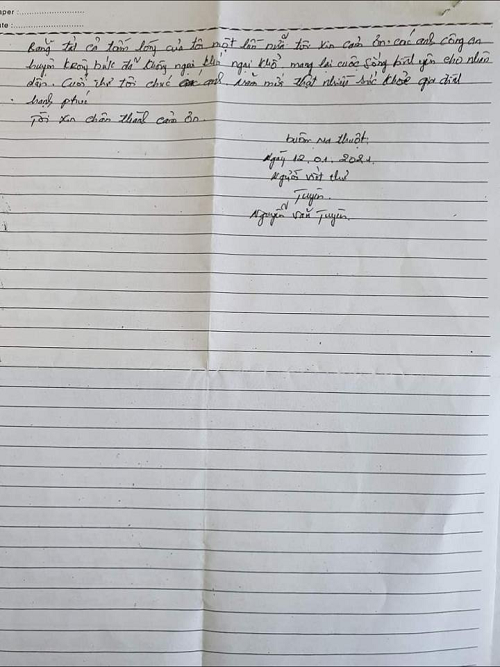 aper :
ate :
Bằng tất cả tấm lòng của tôi một lần nữa tôi xin cảm ơn các anh công an
huyện Krông búk đã không ngại khó ngại khổ mang lại cuộc sống bình yên cho nhân
dân. Cuối thư tôi chúc các anh năm mới thật nhiều sức khỏe gia đình
hạnh phúc
Tôi xin chân thành cảm ơn
buôn ma thuột.
Ngày 12.01.2021
Người viết thư
Tuyên.
Nguyễn Văn Tuyên.